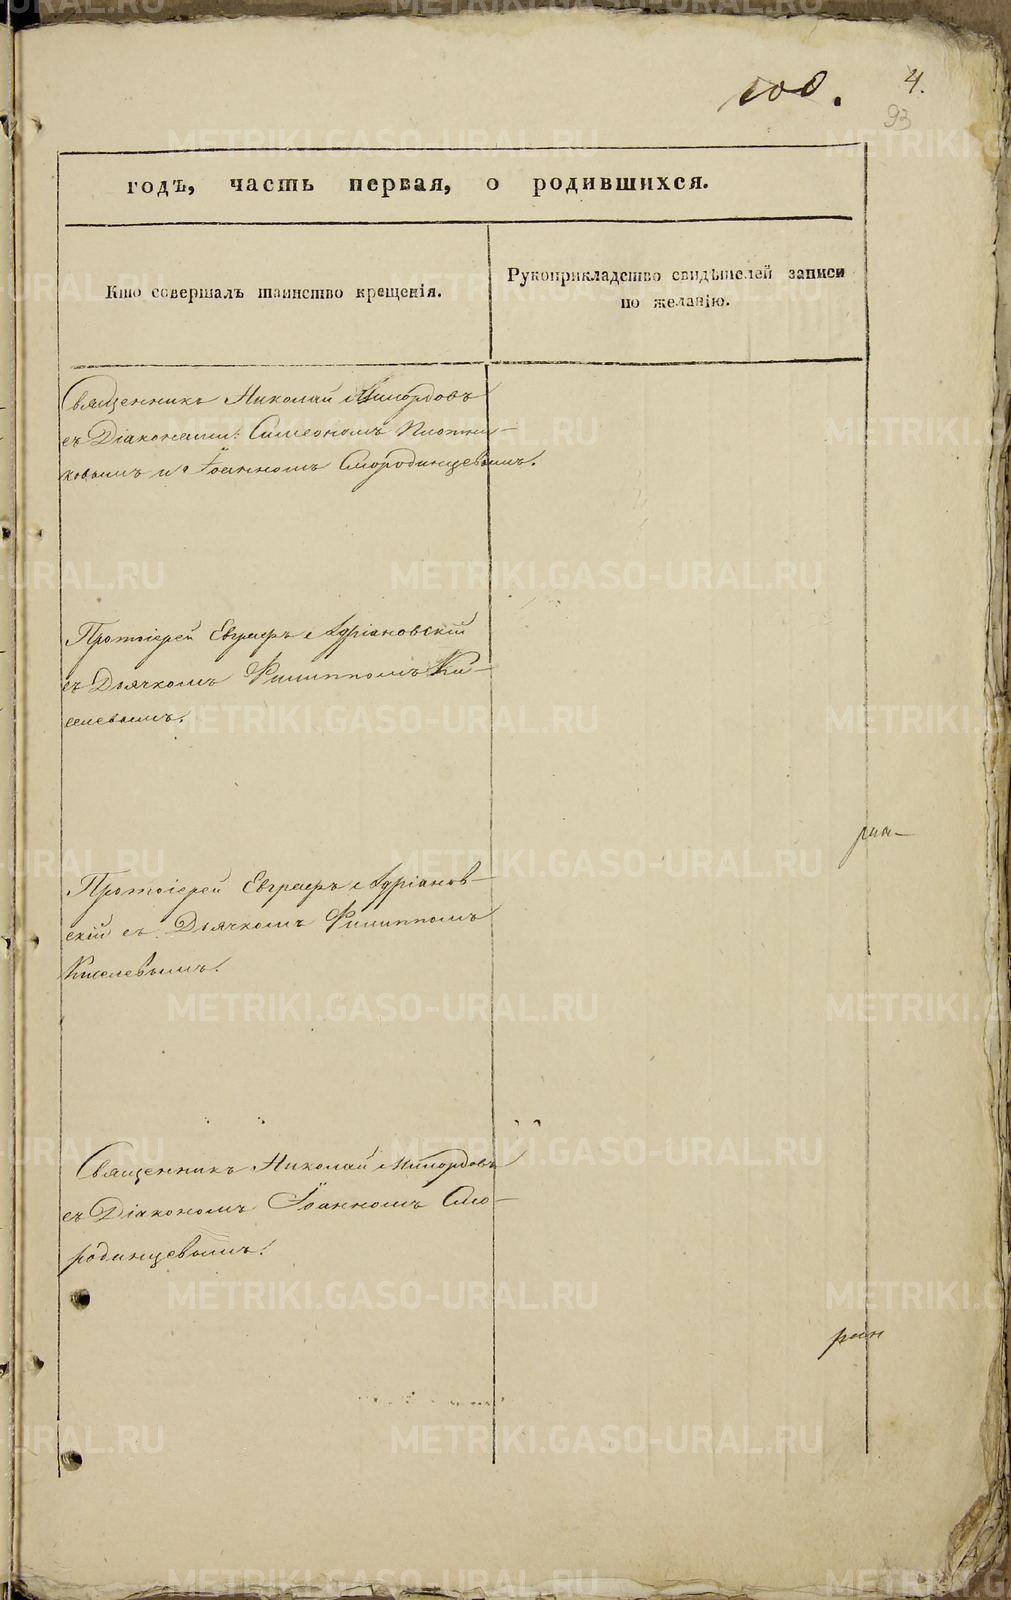 4.
93
годъ, часть первая, о родившихся.
Кто совершалъ таинство крещенія.
Рукоприкладство свидѣтелей записи
по желанію.
Священникъ Николай Милордовъ
съ Діаконами: Симеономъ Плотни-
ковымъ и Іоанномъ Смородинцевымъ.
Протоіерей Евграфъ Адріановскій
съ Дьячкомъ Филиппомъ Ки-
селевымъ.
Протоіерей Евграфъ Адріанов-
скій съ Дьячкомъ Филиппомъ
Киселевымъ.
Священникъ Николай Милордовъ
съ Діакономъ Іоанномъ Смо-
родинцевымъ.
METRIKI.GASO-URAL.RU